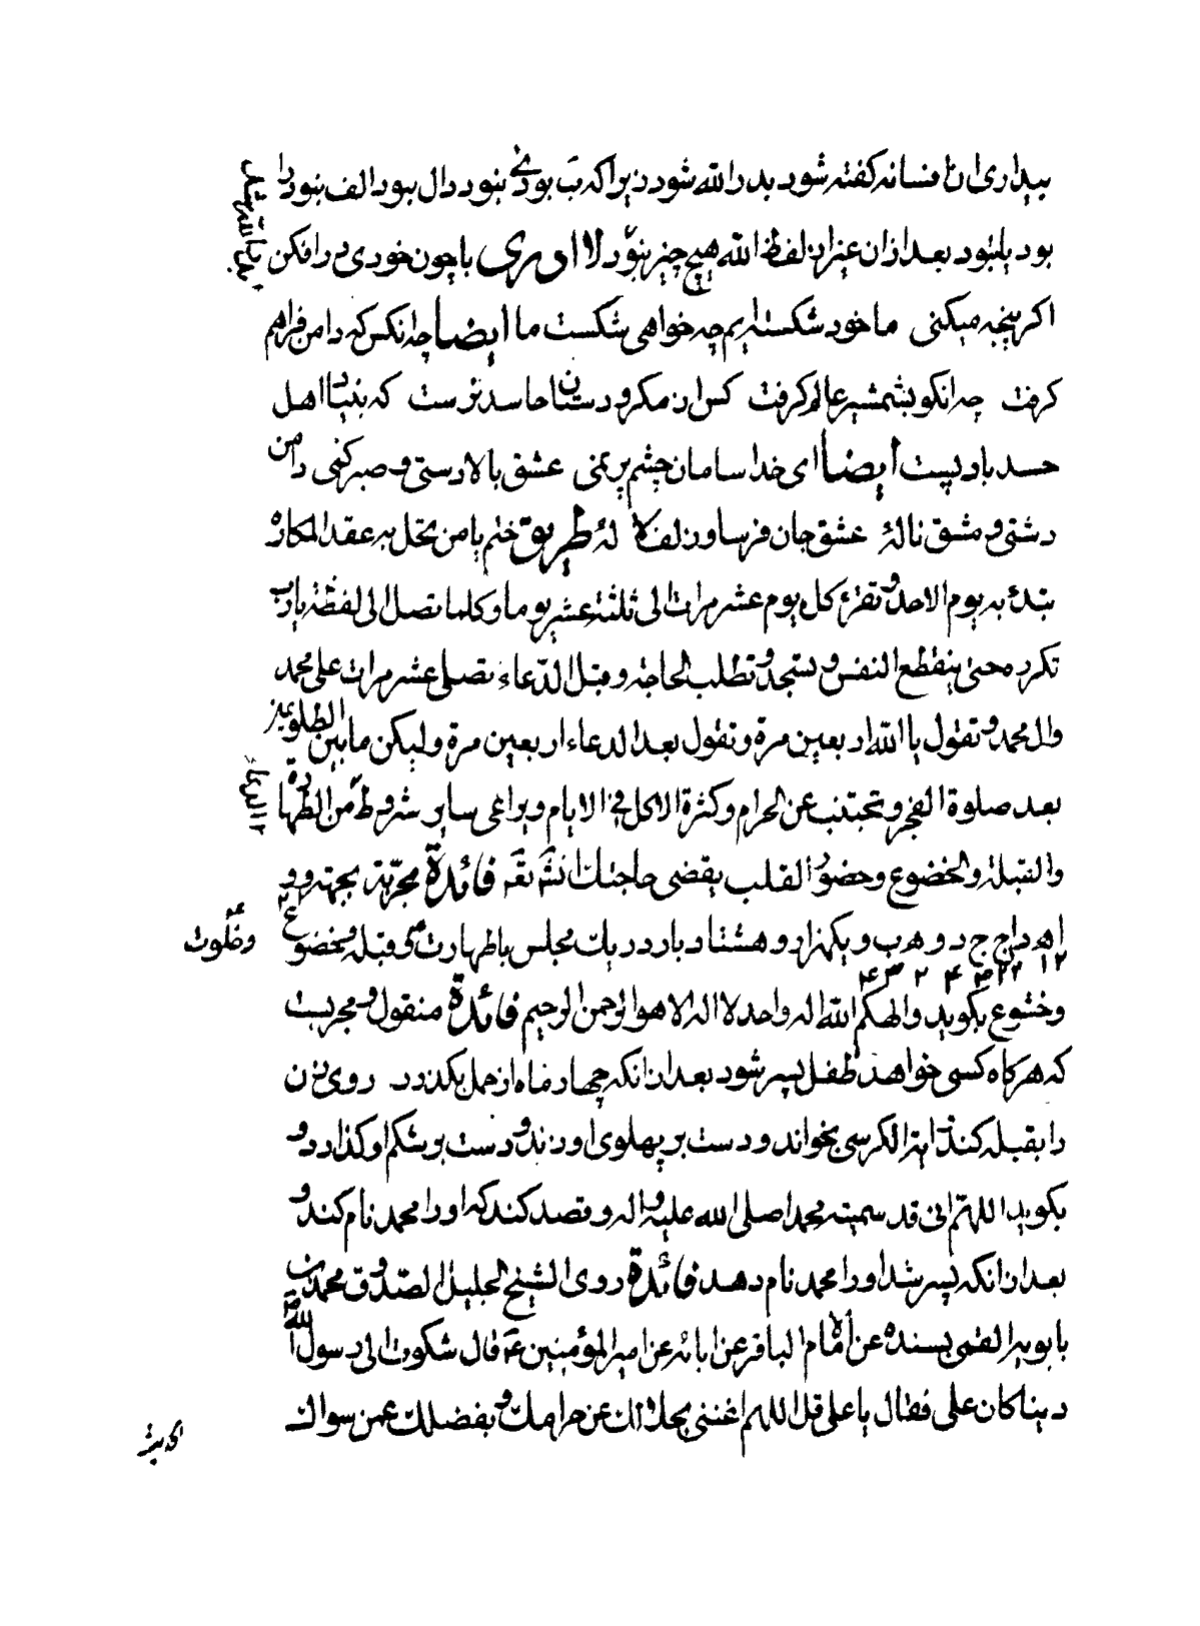 بیداری ان افسانه کفته شود بدر الله شود زیرا که ب بود بنود دال بود الف بنود را
بود بلبنود بعد از ان عیران لفظ الله هیچ چیز بنود لا ادری با چون خودی در افکن
اکر پنجه میکنی ما خود شکسته ایم چه خواهی شکست ما ایضا چه انکس که دامن فراهم
کرفت چه انکو بشمشیر عالم کرفت کس از مکر و دستان حاسد نرست که بنیاد اهل
حسد باد نیست ایضا ای خدا سامان چشم پر نمی عشق بالادستی و صبر کمی دامن
دشتی و مشق نالهٔ عشق جان فرسا و زلف طریق ختم یا من تحل به عقد المکاره
بتدء به یوم الاحد و تقرء کل یوم عشر مرات الی ثلثة عشر یوما و کلما تصل الی لفظة یا رب
تکرر حتی ینقطع النفس و تسجد و تطلب الحاجة و قبل الدعاء تصلی عشر مرات علی محمد
وال محمد و تقول یا الله اربعین مرة و تقول بعد الدعاء اربعین مرة ولیکن ما بین الطلوعین
بعد صلوة الفجر و تجتنب عن الحرام و کثرة الاکل فی الایام و یراعی سایر شروط من الطهارة
والقبلة والخضوع وحضور القلب یقضی حاجتک انشَ تعَه فائدة مجربة بجهة
اهداج ج د و هرب و یکهزار و هشتاد بار در یک مجلس با طهارت و قبله و خضوع
وخلوت
وخشوع بکوید والهکم الله اله واحد لا اله الا هو الرحمن الرحیم فائدة منقول و مجربست
که هر کاه کسی خواهد طفل پسر شود بعد از انکه چهار ماه از حمل بکذرد روی زن
را بقبله کند ایة الکرسی بخواند و دست بر پهلوی او زند و دست بر شکم او کذارد و
بکوید اللهم انی قد سمیته محمدا صلی الله علیه واله و قصد کند که او را محمد نام کند و
بعد از انکه پسر شد او را محمد نام دهد فائدة روی الشیخ الجلیل الصدوق محمد بن
بابویه القمی بسنده عن الامام الباقر عن ابائه عن امیر المؤمنین ع قال شکوت الی رسول الله
دینا کان علی فقال یا علی قل اللهم اغننی بحلالک عن حرامک و بفضلک عمن سواک
الحدیث